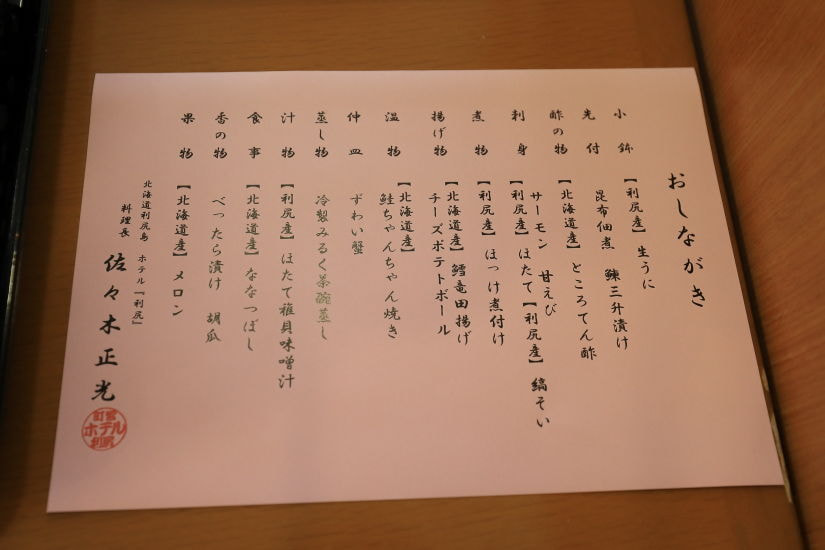 おしながき
小鉢 【利尻産】生うに
先付 昆布佃煮 鰊三升漬け
酢の物 【北海道産】ところてん酢
刺身 サーモン 甘えび
【利尻産】ほたて【利尻産】縞そい
煮物 【利尻産】ほっけ煮付け
揚げ物 【北海道産】鱈竜田揚げ
チーズポテトボール
温物 【北海道産】
鮭ちゃんちゃん焼き
仲皿 ずわい蟹
蒸し物 冷製みるく茶碗蒸し
汁物 【利尻産】ほたて稚貝味噌汁
食事 【北海道産】ななつぼし
香の物 べったら漬け 胡瓜
果物 【北海道産】メロン
北海道利尻島 ホテル『利尻』
料理長 佐々木正光
町営
ホテル
利尻